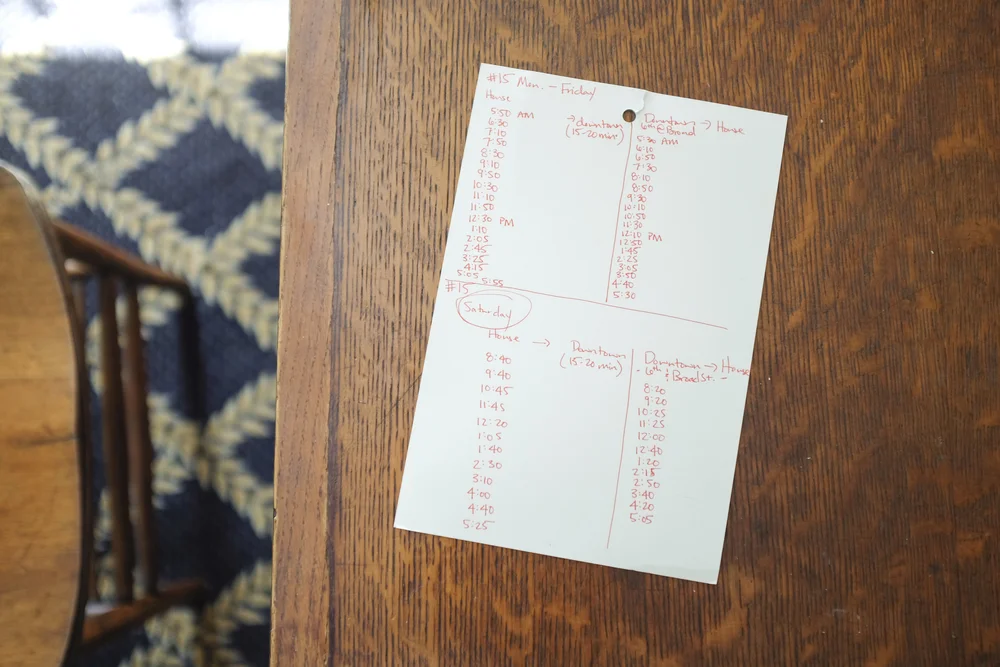 #15 Mon. - Friday
House
→ downtown
(15-20 min)
5:50 AM
6:30
7:10
7:50
8:30
9:10
9:50
10:30
11:10
11:50
12:30 PM
1:10
2:05
2:45
3:25
4:15
5:05 5:55
Downtown → House
6th @ Broad
5:30 AM
6:10
6:50
7:30
8:10
8:50
9:30
10:10
10:50
11:30
12:10 PM
12:50
1:45
2:25
3:05
3:50
4:40
5:30
#15
Saturday
House → Downtown
(15-20 min)
8:40
9:40
10:45
11:45
12:20
1:05
1:40
2:30
3:10
4:00
4:40
5:25
Downtown → House
- 6th & Broad St. -
8:20
9:20
10:25
11:25
12:00
12:40
1:20
2:15
2:50
3:40
4:20
5:05